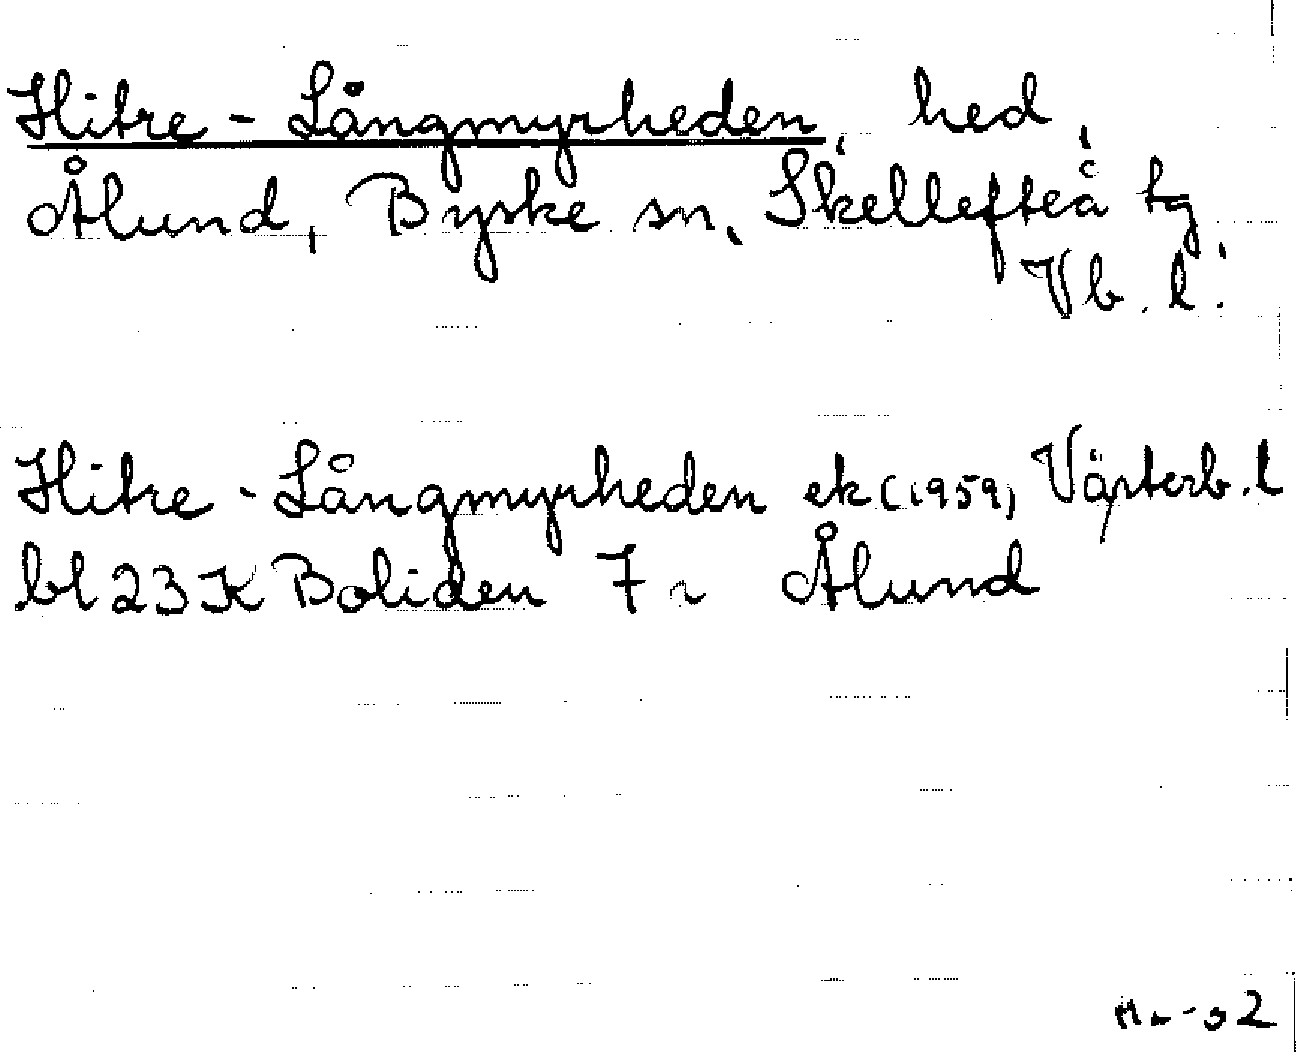 Hitre-Långmyrheden, hed,
Ålund, Byske sn, Skellefteå tg
Vb. l.
Hitre-Långmyrheden ek (1959) Västerb. l
bl 23 K Boliden 7 Ålund